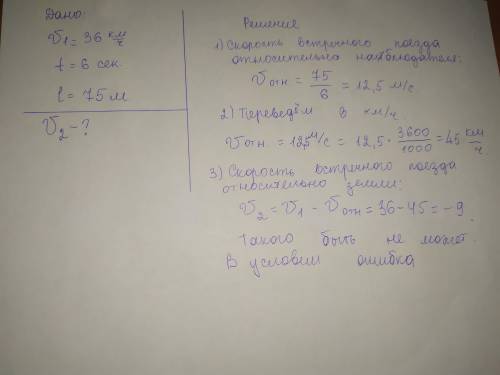 Дано:
V1 = 36 км/ч
t = 6 сек
l = 75 м
V2 - ?
Решение
1) Скорость встречного поезда
относительно наблюдателя:
Vотн = 75/6 = 12,5 м/с
2) Переведём в км/ч.
Vотн = 12,5 м/с = 12,5 · 3600/1000 = 45 км/ч.
3) Скорость встречного поезда
относительно земли:
V2 = V1 - Vотн = 36 - 45 = -9.
Такого быть не может.
В условии ошибка